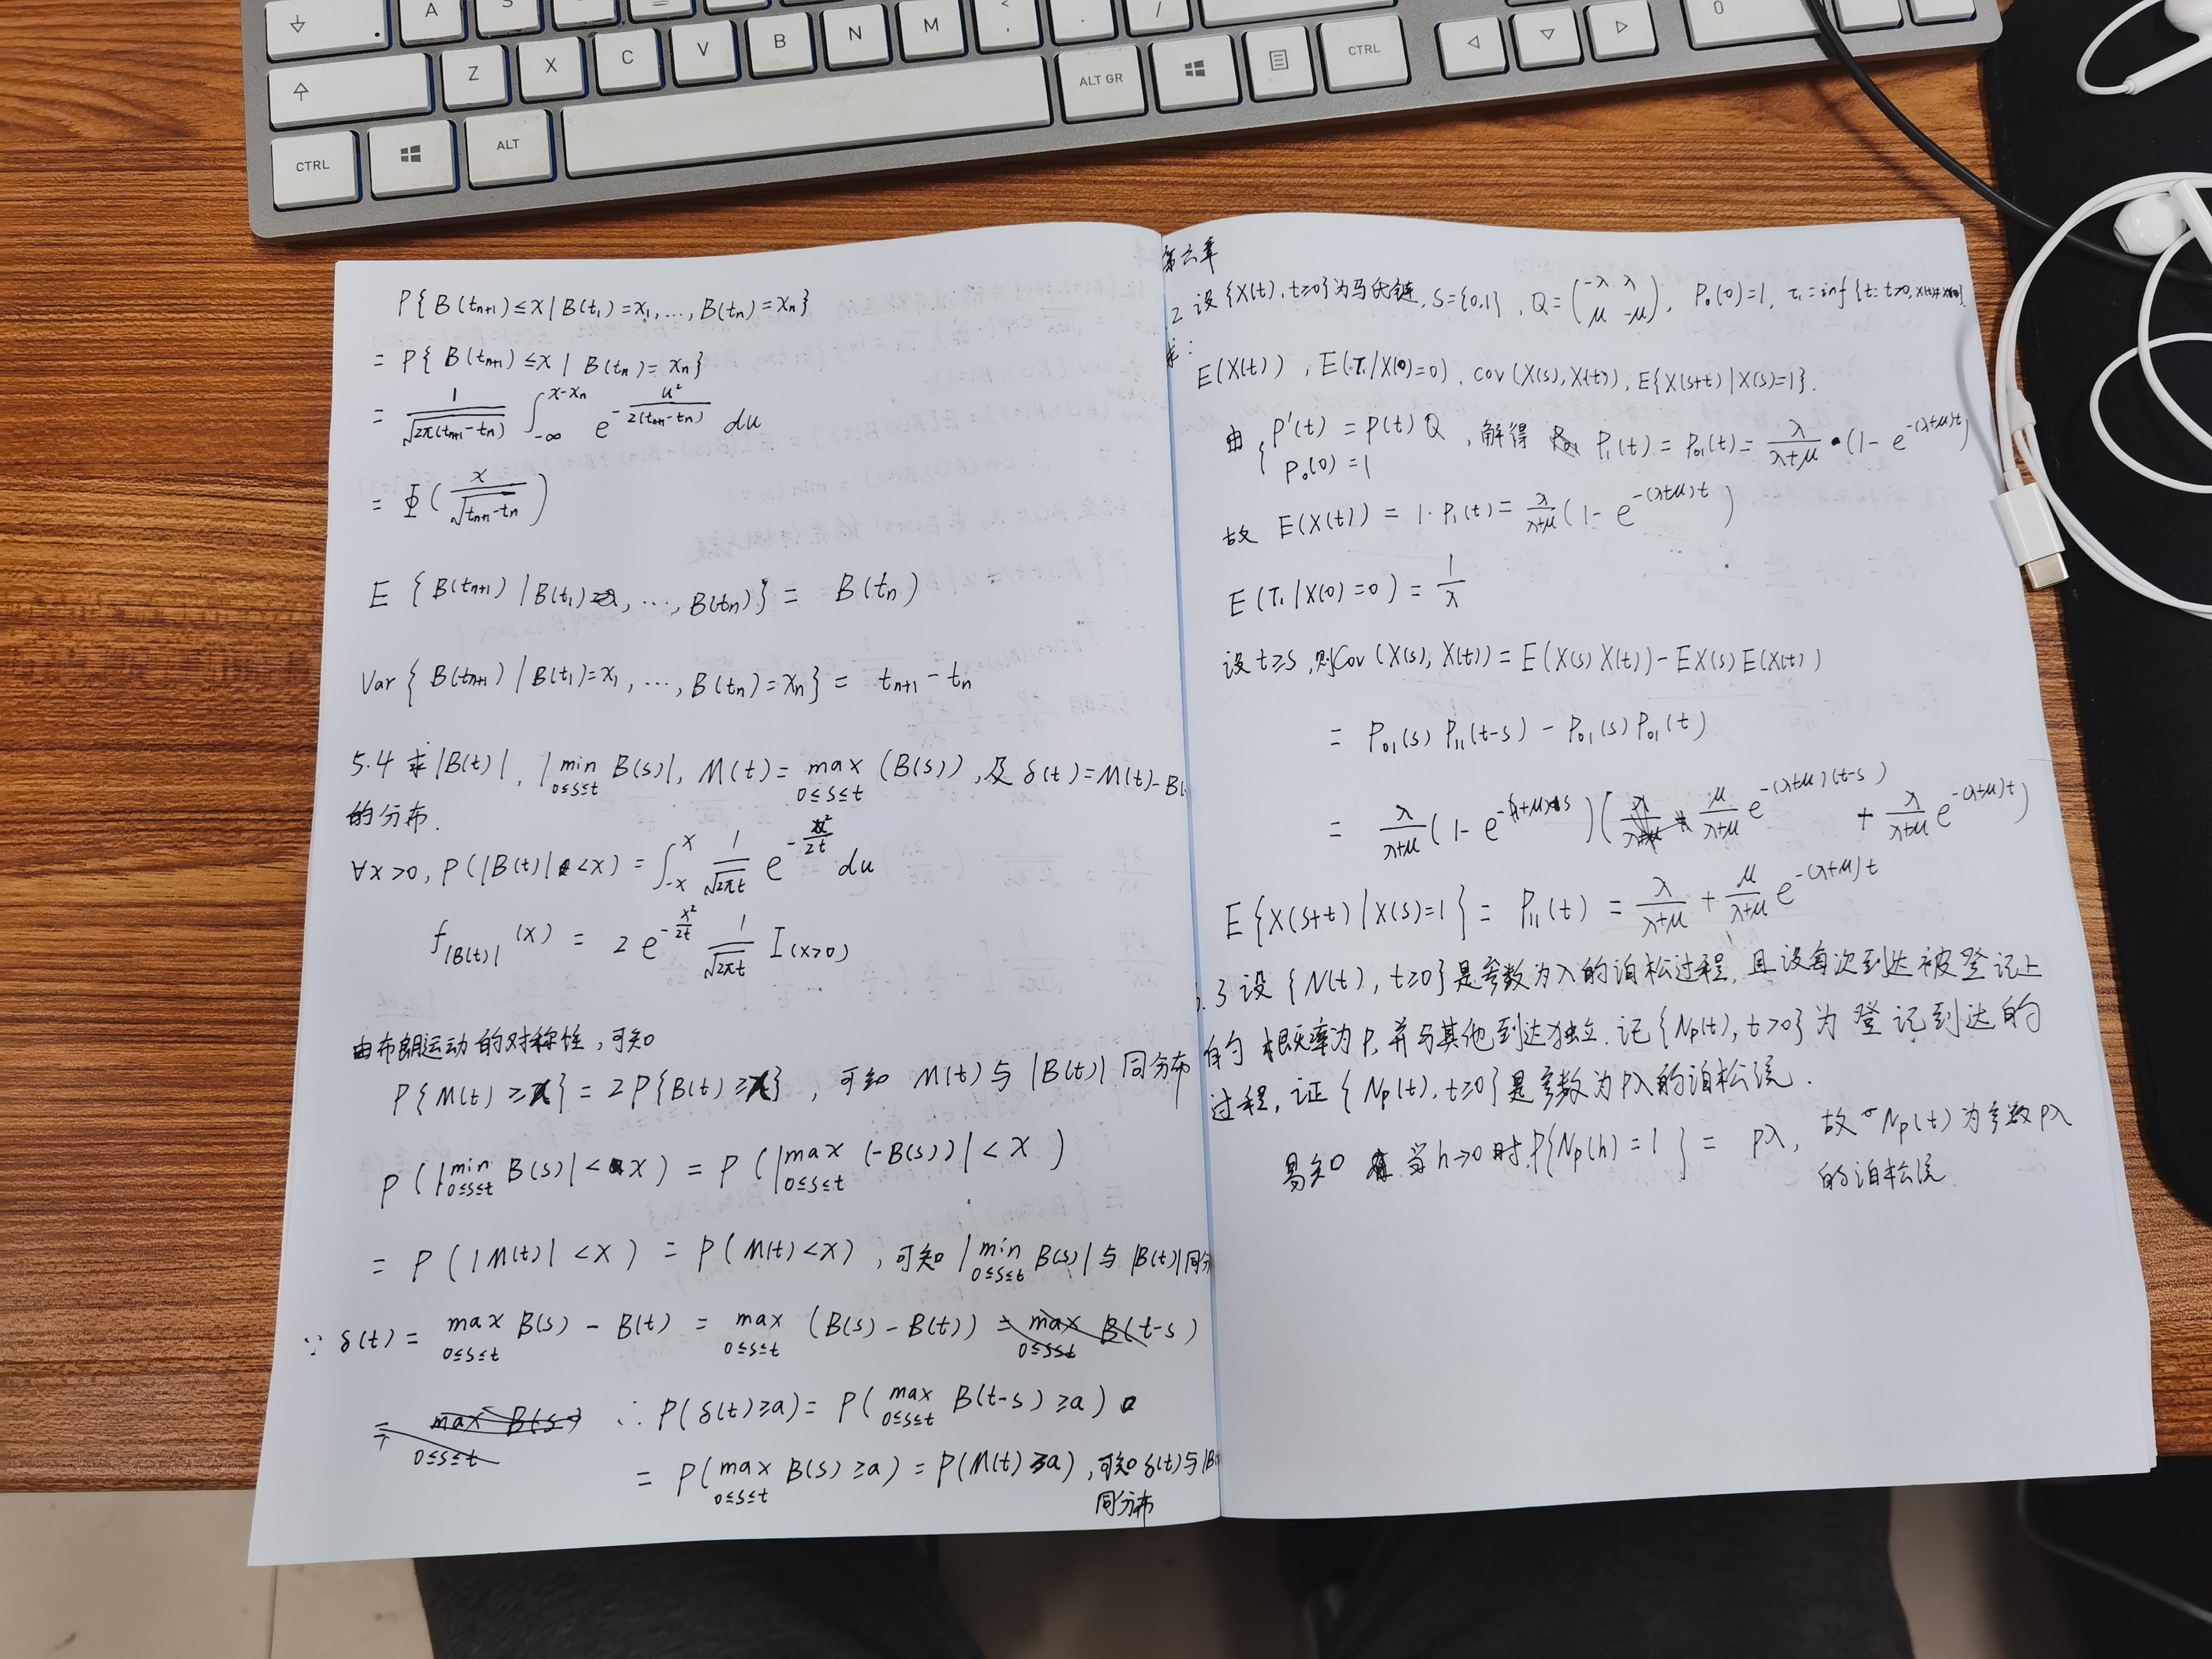 A S
Z X C V B N M < , . /
0
ALT GR
CTRL
CTRL
ALT
P{B(tₙ₊₁)≤x|B(t₁)=x₁,…,B(tₙ)=xₙ}
= P{B(tₙ₊₁)≤x | B(tₙ)=xₙ}
= \frac{1}{\sqrt{2π(tₙ₊₁-tₙ)}} ∫_{-∞}^{x-xₙ} e^{-\frac{u²}{2(tₙ₊₁-tₙ)}} du
= Φ(\frac{x}{\sqrt{tₙ₊₁-tₙ}})
E {B(tₙ₊₁)|B(t₁),…,B(tₙ)} = B(tₙ)
Var{B(tₙ₊₁)|B(t₁)=x₁,…,B(tₙ)=xₙ} = tₙ₊₁-tₙ
5.4 求|B(t)|, |min_{0≤s≤t} B(s)|, M(t)=max_{0≤s≤t}(B(s)),及δ(t)=M(t)-B(
的分布.
∀x>0, P(|B(t)|<x) = ∫_{-x}^{x} \frac{1}{\sqrt{2πt}} e^{-\frac{u²}{2t}} du
f_{|B(t)|}(x) = 2 e^{-\frac{x²}{2t}} \frac{1}{\sqrt{2πt}} I(x>0)
由布朗运动的对称性,可知
P{M(t)≥x} = 2P{B(t)≥x}, 可知 M(t)与|B(t)|同分布
P(|min_{0≤s≤t} B(s)|<x) = P(|max_{0≤s≤t}(-B(s))|<x)
= P(|M(t)|<x) = P(M(t)<x), 可知|min_{0≤s≤t} B(s)|与|B(t)|同分
∵ δ(t) = max_{0≤s≤t} B(s) - B(t) = max_{0≤s≤t} (B(s)-B(t)) = max_{0≤s≤t} B(t-s)
= max_{0≤s≤t} B(s) ∴ P(δ(t)≥a) = P(max_{0≤s≤t} B(t-s)≥a)
= P(max_{0≤s≤t} B(s)≥a) = P(M(t)≥a),可知δ(t)与|B
同分布
第六章
.2 设{X(t),t≥0}为马氏链,S={0,1}, Q=\begin{pmatrix}-λ & λ\\ μ & -μ\end{pmatrix}, P₀(0)=1, τ₁=inf{t: t>0,X(t)≠X(0)}.
求:
E(X(t)), E(τ₁|X(0)=0), cov(X(s),X(t)), E{X(s+t)|X(s)=1}.
由 {P'(t)=P(t)Q, 解得 P₁(t)=P₀₁(t)=\frac{λ}{λ+μ}·(1-e^{-(λ+μ)t})
P₀(0)=1
故 E(X(t)) = 1·P₁(t) = \frac{λ}{λ+μ}(1-e^{-(λ+μ)t})
E(τ₁|X(0)=0) = \frac{1}{λ}
设t≥s,则Cov(X(s),X(t)) = E(X(s)X(t))-EX(s)E(X(t))
= P₀₁(s)P₁₁(t-s) - P₀₁(s)P₀₁(t)
= \frac{λ}{λ+μ}(1-e^{-(λ+μ)s})(\frac{μ}{λ+μ}e^{-(λ+μ)(t-s)} + \frac{λ}{λ+μ}e^{-(λ+μ)t})
E{X(s+t)|X(s)=1} = P₁₁(t) = \frac{λ}{λ+μ} + \frac{μ}{λ+μ}e^{-(λ+μ)t}
.3 设{N(t),t≥0}是参数为λ的泊松过程,且设每次到达被登记上
的概率为P,并与其他到达独立.记{Nₚ(t),t>0}为登记到达的
过程,证{Nₚ(t),t≥0}是参数为pλ的泊松流.
易知 当h→0时,P{Nₚ(h)=1} = pλ, 故Nₚ(t)为参数pλ
的泊松流